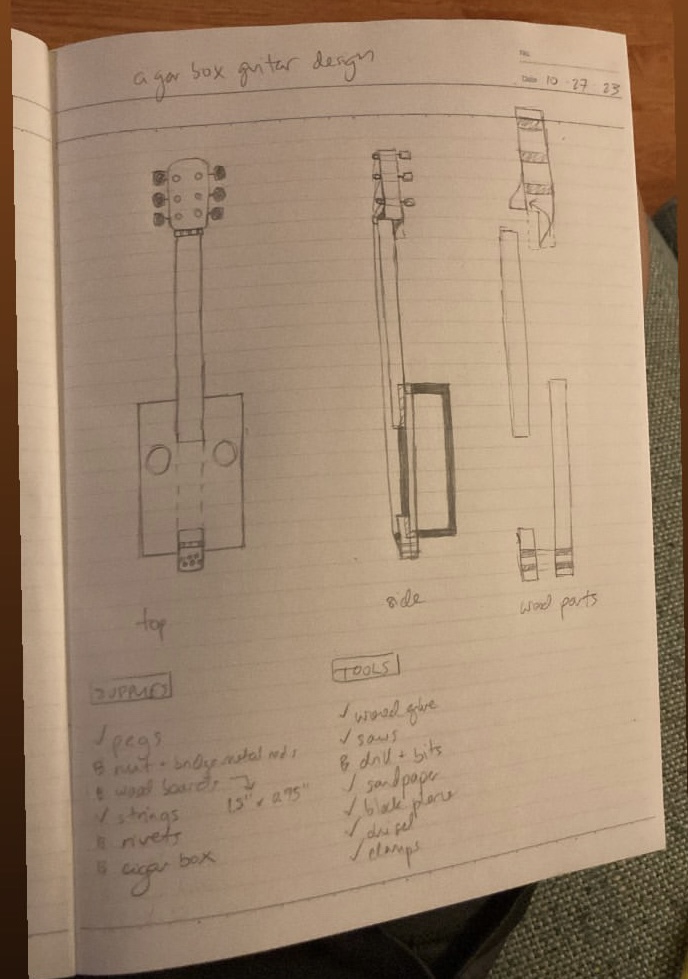 cigar box guitar design
No.
Date 10 · 27 · 23
top
side
wood parts
SUPPLIES
✓ pegs
nut + bridge metal rods
wood boards
1.5" x 0.75"
✓ strings
rivets
cigar box
TOOLS
✓ wood glue
✓ saws
drill + bits
✓ sandpaper
✓ block plane
✓ chisel
✓ clamps